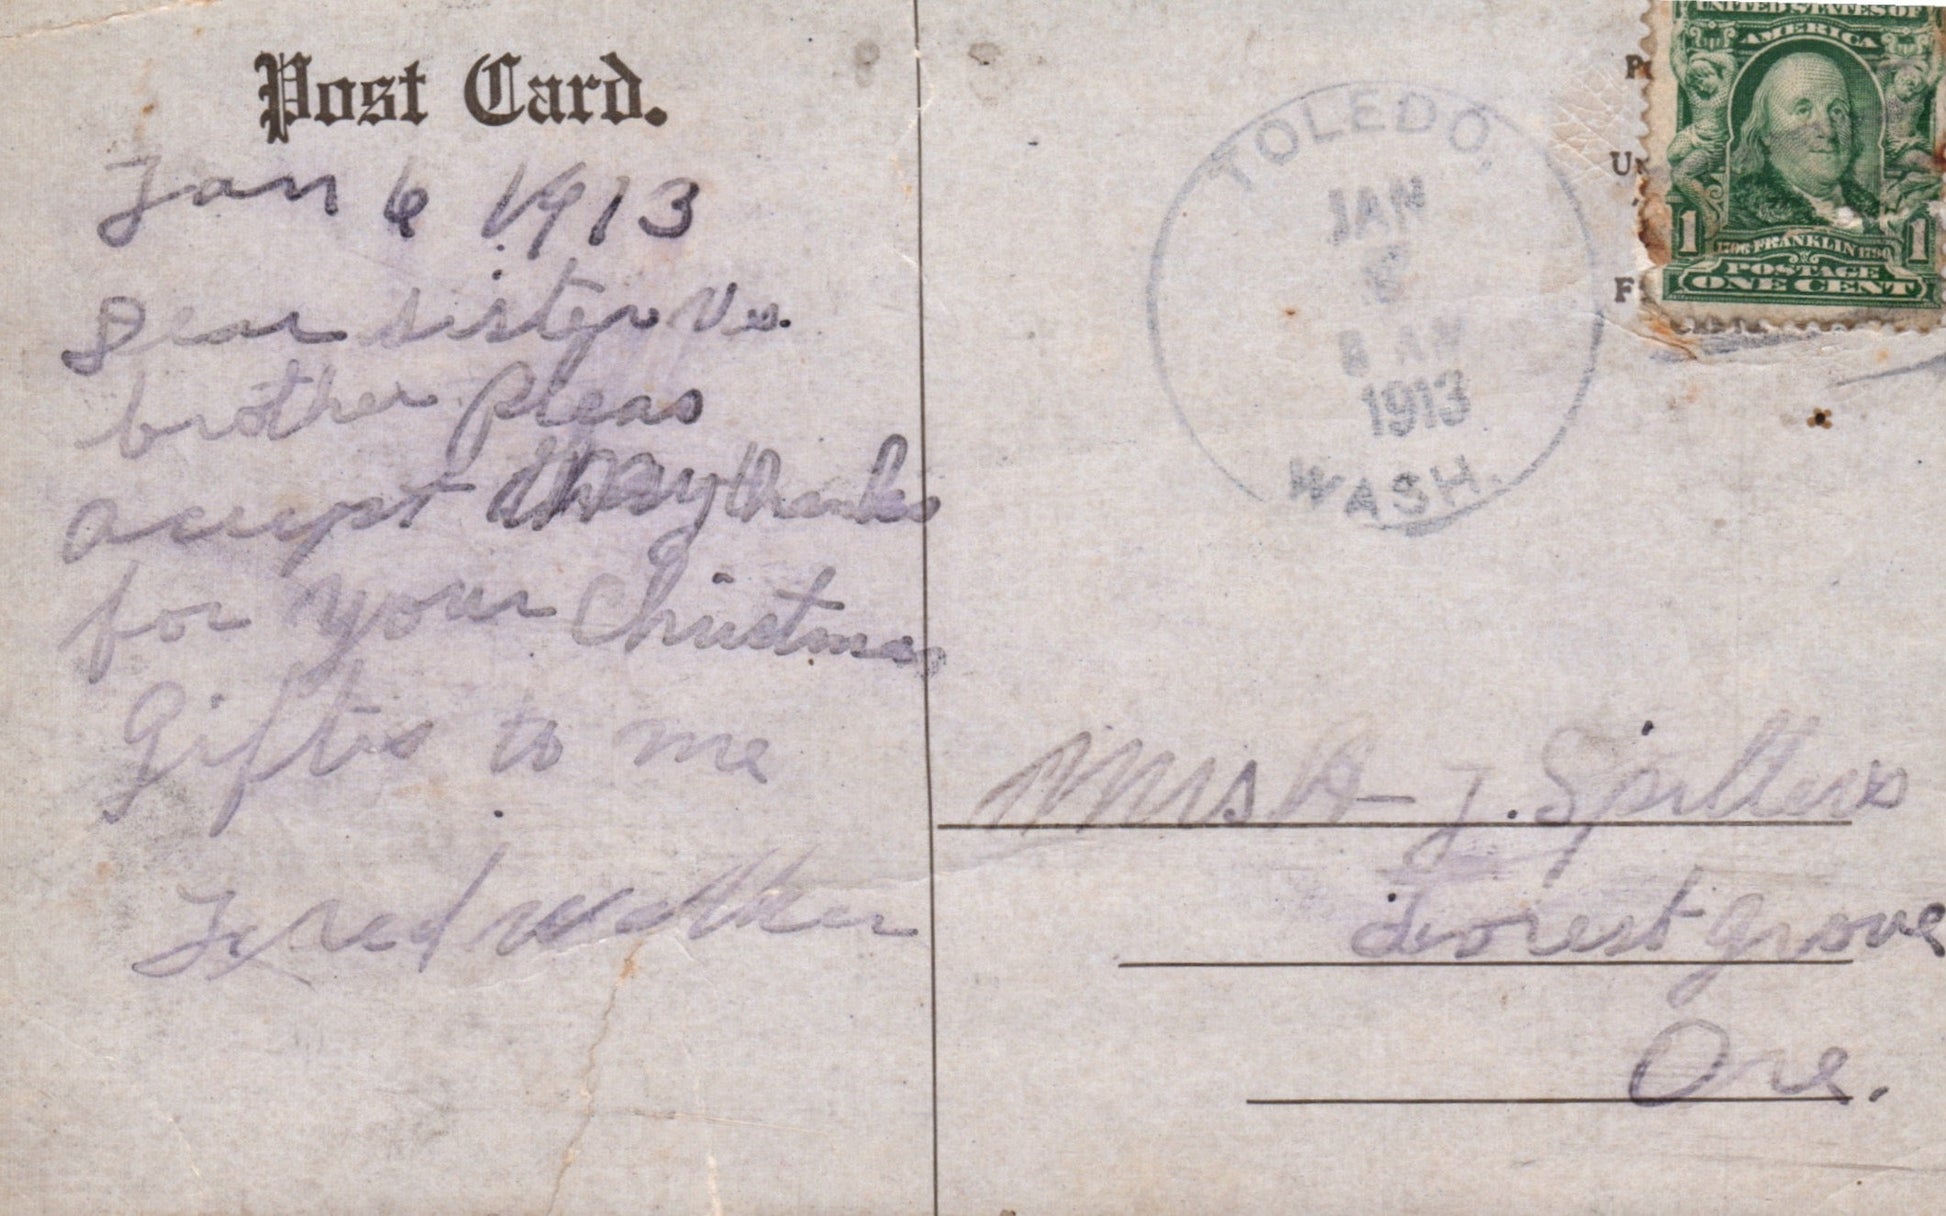 Post Card.
Jan 6 1913
Dear sister
brother Pleas
accept my thanks
for your Christmas
Gifts to me
Fred Walker
TOLEDO,
JAN
8 AM
1913
WASH.
UNITED STATES OF
AMERICA
1 1706 FRANKLIN 1790 1
POSTAGE
ONE CENT
Mrs A J. Spillers
Forest Grove
Ore.